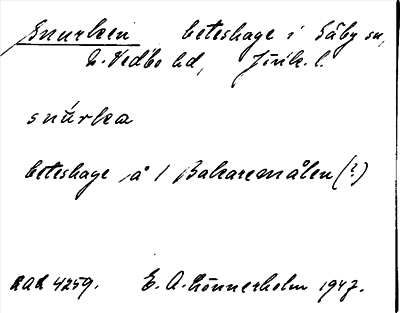 Snurken beteshage i Säby sn,
N. Vedbo hd, Jönk. l.
snúrka
beteshage å 1 Bakaremålen (?)
Rad 4259. E. A. Lönnerholm 1947.